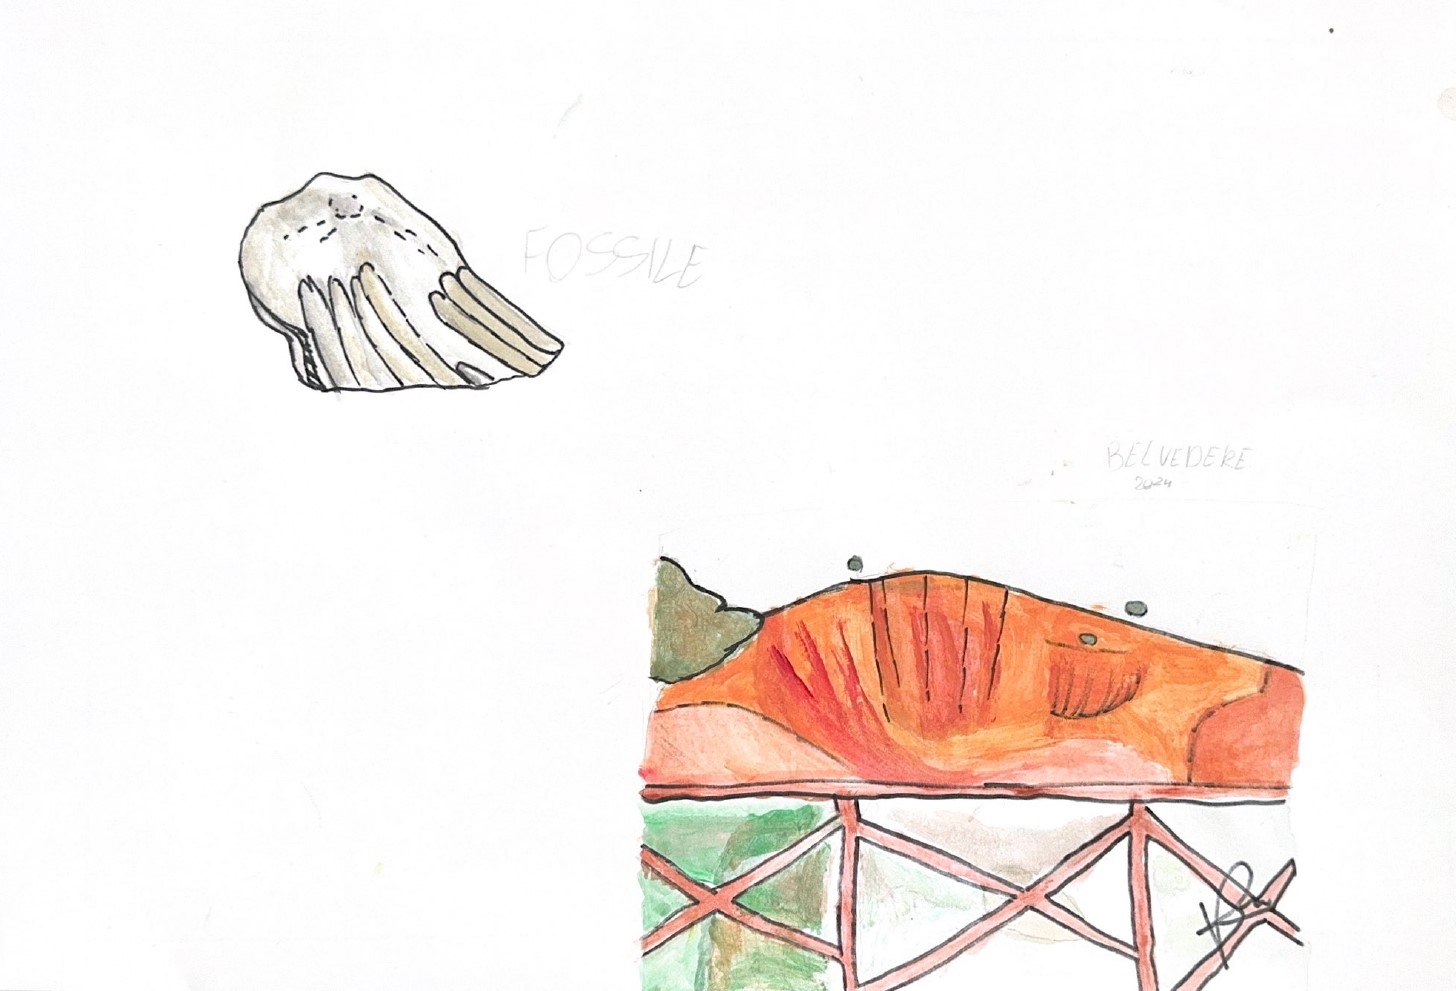 FOSSILE
BELVEDERE
2024